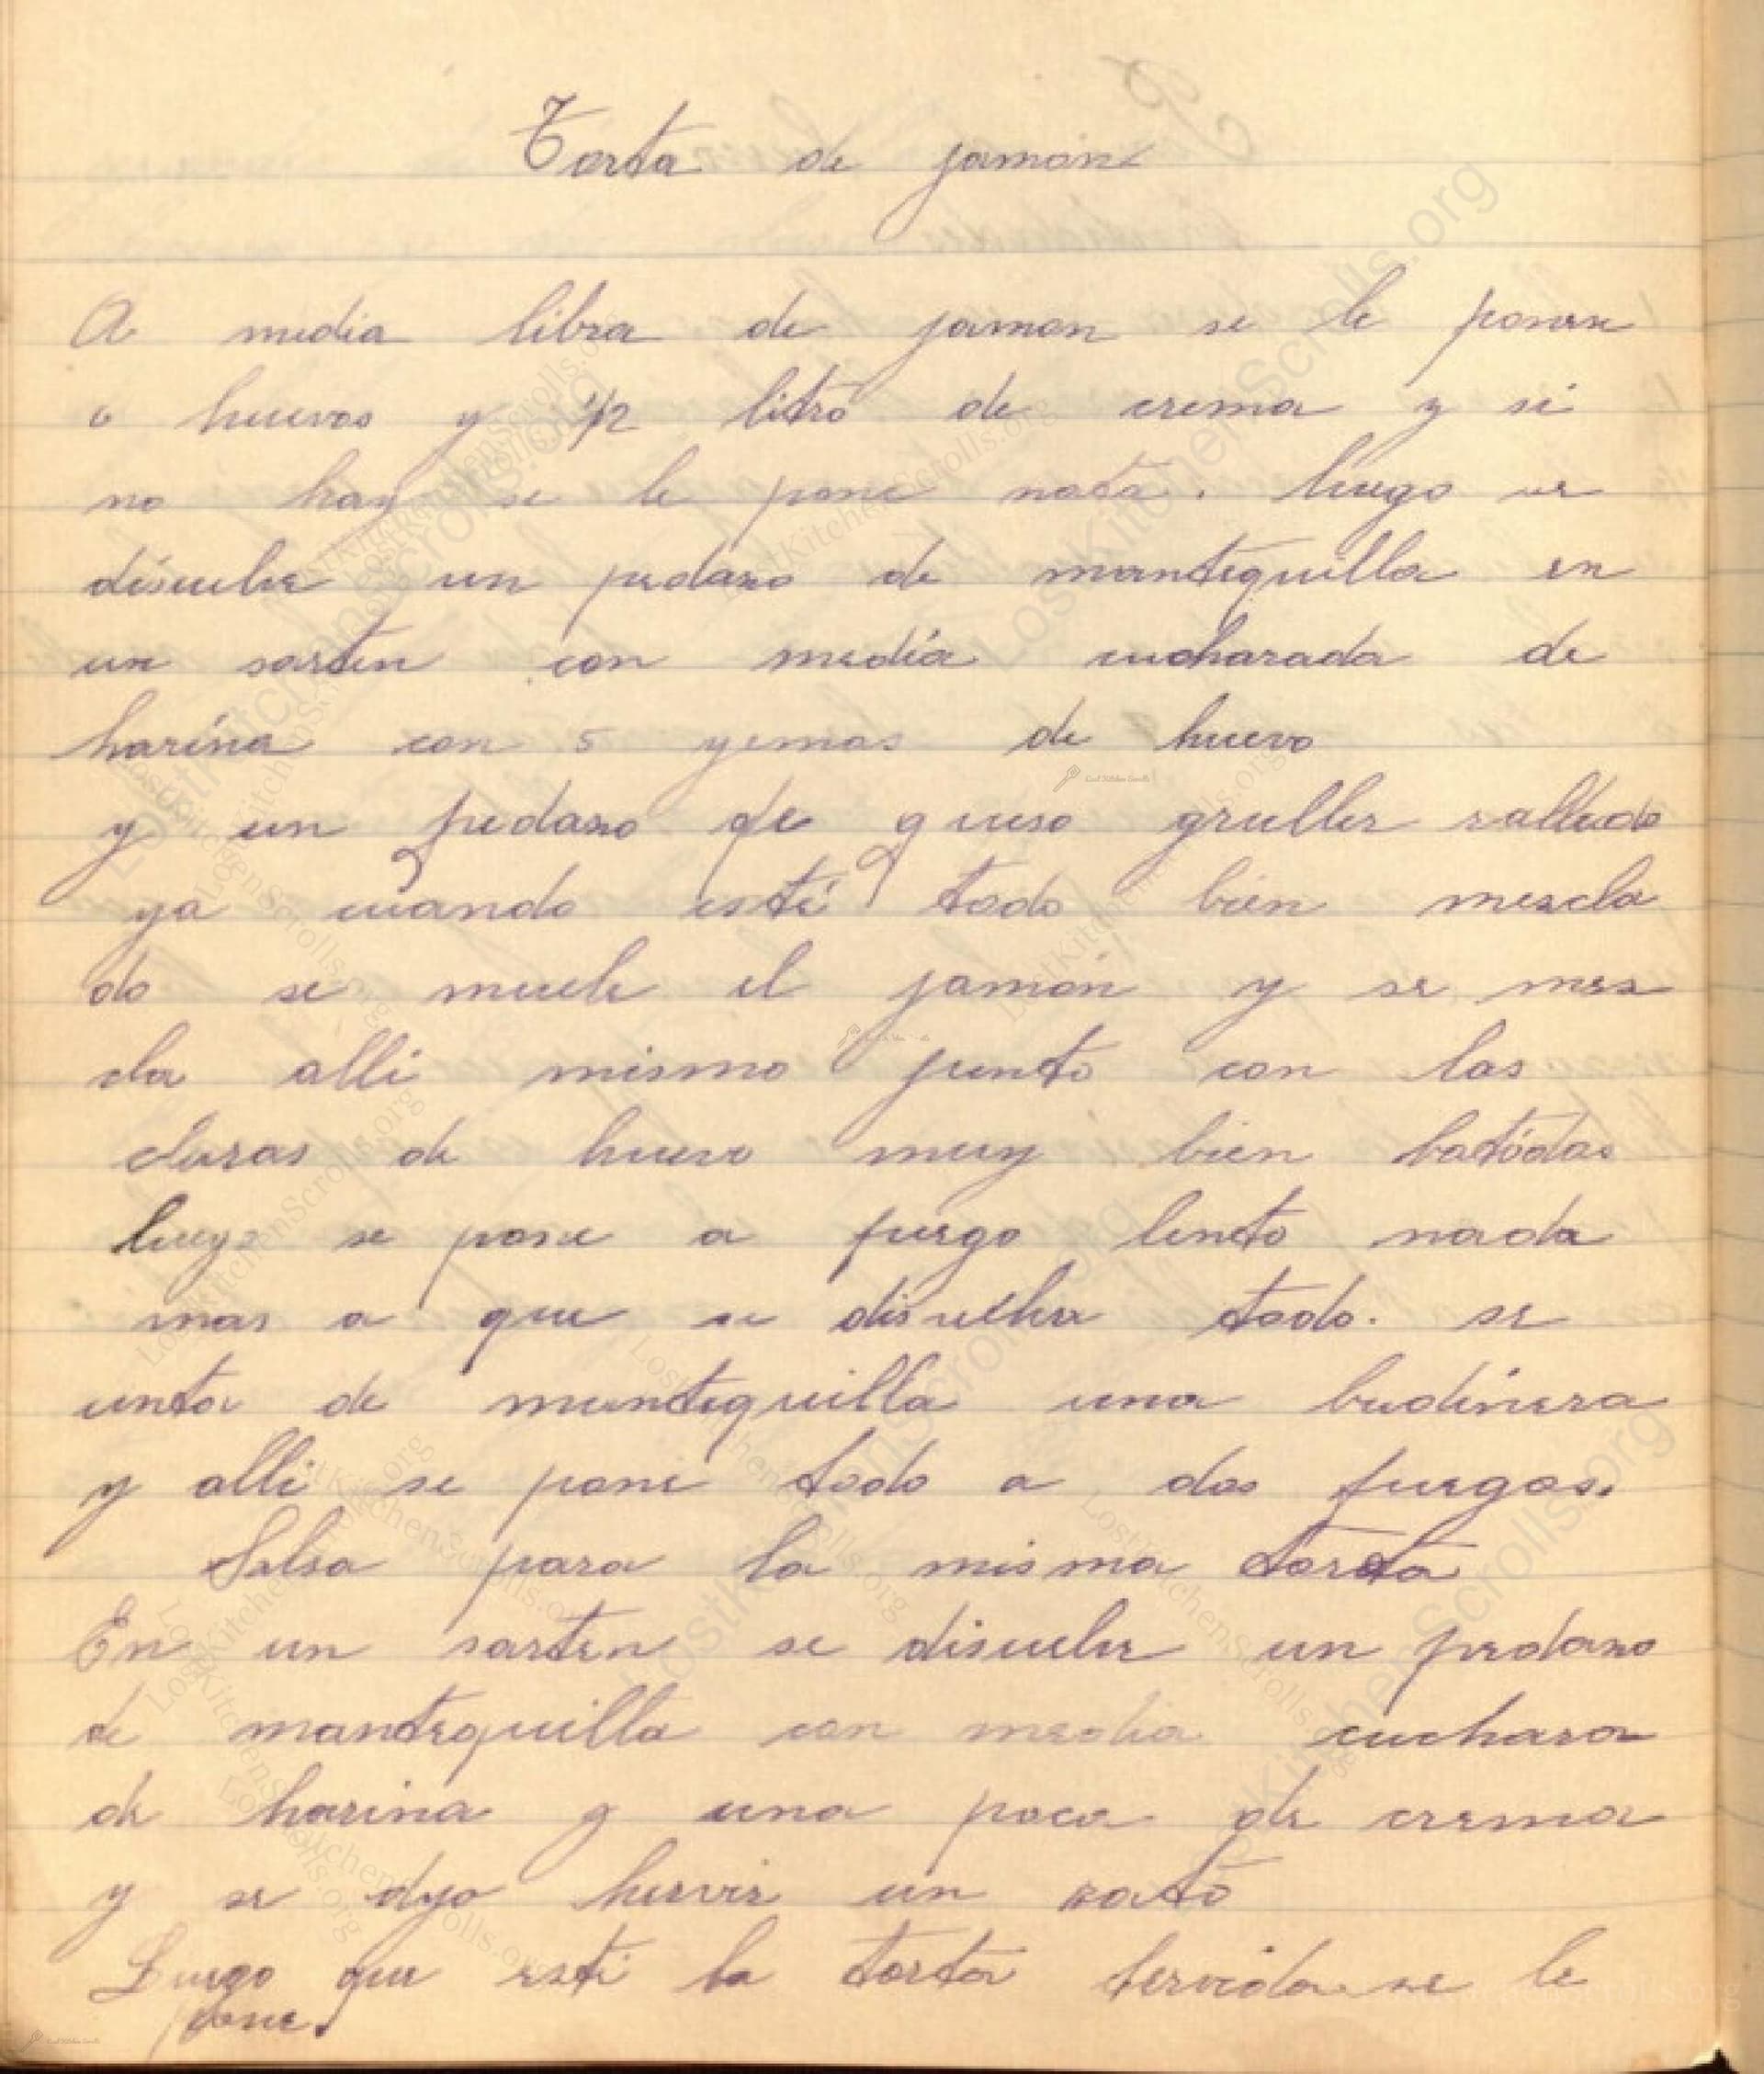 Torta de jamon
A media libra de jamon se le ponen
huevos y 1/2 litro de crema y si
no hay se le pone nata. luego se
disuelve un pedazo de mantequilla en
un sarten con media cucharada de
harina con 5 yemas de huevo
y un pedazo de queso gruller rallado
ya cuando esté todo bien mezcla
do se muele el jamón y se mez
cla alli mismo junto con las
claras de huevo muy bien batidas
luego se pone a fuego lento nada
mas a que se disuelva todo. se
unta de mantequilla una budinera
y alli se pone todo a dos fuegos.
Salsa para la misma torta
En un sarten se disuelve un pedazo
de mantequilla con media cuchara
de harina y una poca de crema
y se deja hervir un rato
Luego que esté la torta servida se le
pone.
LostKitchenScrolls.org